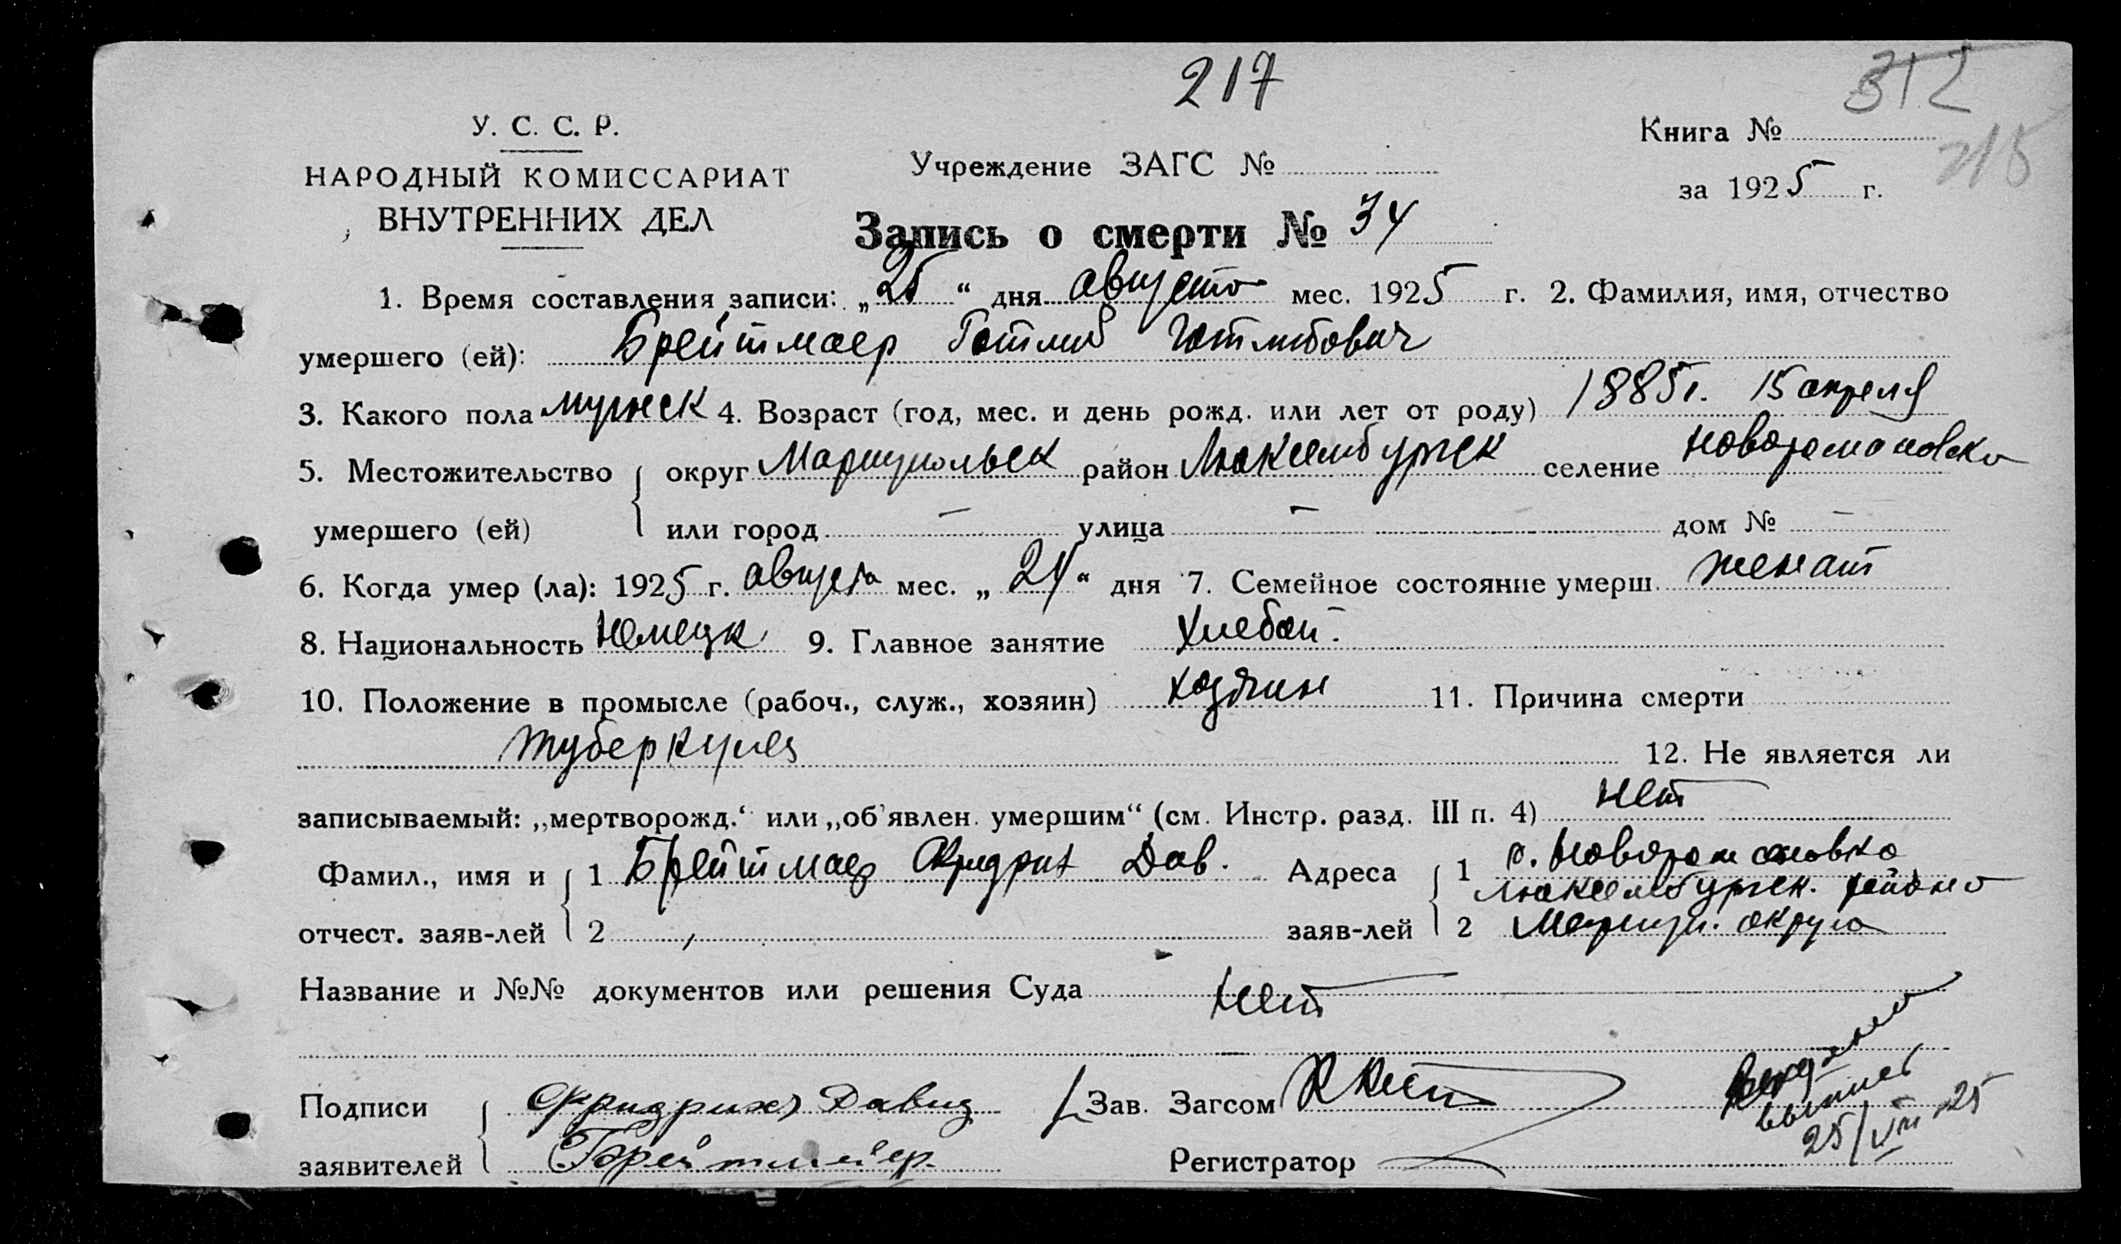 217
312
215
У. С. С. Р.
НАРОДНЫЙ КОМИССАРИАТ
ВНУТРЕННИХ ДЕЛ
Учреждение ЗАГС №
Книга №
за 1925 г.
Запись о смерти № 34
1. Время составления записи: „25“ дня августа мес. 1925 г. 2. Фамилия, имя, отчество
умершего (ей): Брейтмаер Готлиб Готлибович
3. Какого пола мужск 4. Возраст (год, мес. и день рожд. или лет от роду) 1885г. 15 апреля
5. Местожительство умершего (ей) округ Мариупольск район Люксембургск селение Новоромановка
или город — улица — дом № —
6. Когда умер (ла): 1925 г. августа мес. „24“ дня 7. Семейное состояние умерш. женат
8. Национальность Немецк 9. Главное занятие Хлебоп.
10. Положение в промысле (рабоч., служ., хозяин) хозяин 11. Причина смерти
туберкулез 12. Не является ли
записываемый: „мертворожд.“ или „об'явлен. умершим“ (см. Инстр. разд. III п. 4) нет
Фамил., имя и отчест. заяв-лей 1 Брейтмаер Фридрих Дав. Адреса заяв-лей 1 с. Новоромановка
Люксембургск. района
2 2 Мариуп. округа
Название и №№ документов или решения Суда нет
Подписи заявителей Фридрих Давид Зав. Загсом
Брейтмейер. Регистратор
выпись
25/VIII 25